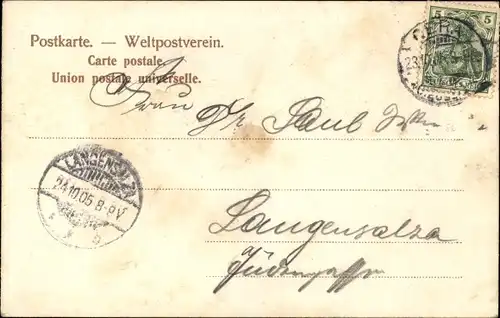 Postkarte. — Weltpostverein.
Carte postale.
Union postale universelle.
5 5
GERA
Frau Dr Paul
LANGENSALZA
24.10.05 8-9V
Langensalza
Jüdengasse